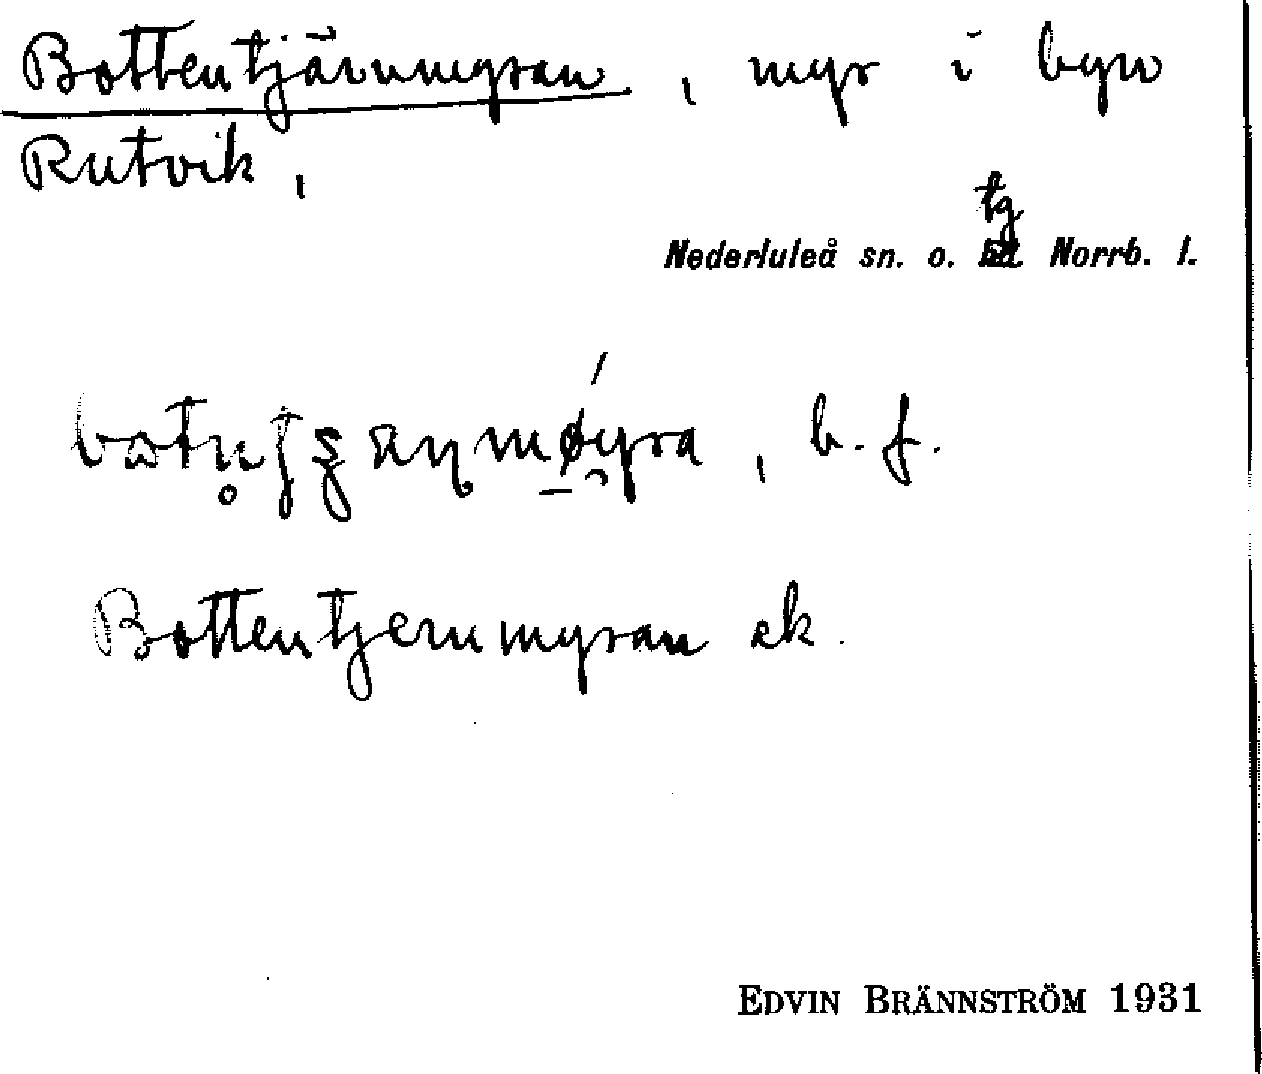 Bottentjärnmyran, myr i byn
Rutvik,
tg
Nederluleå sn. o. Norrb. l.
b.f.
Bottentjernmyran ek.
EDVIN BRÄNNSTRÖM 1931